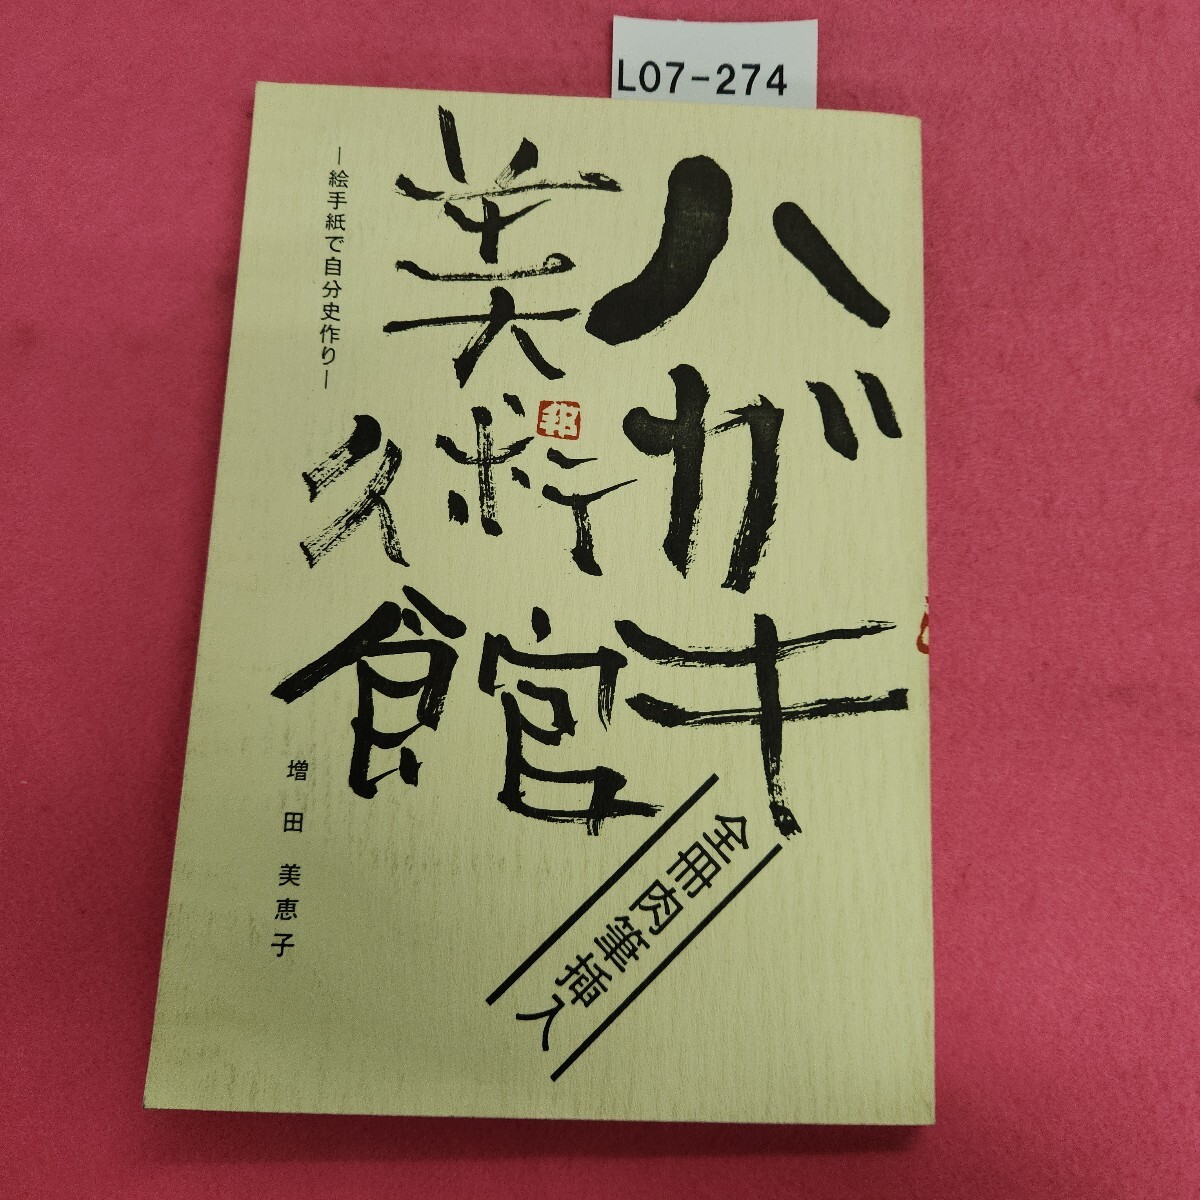 L07-274
ハガキ
美術館
邦
―絵手紙で自分史作り―
増田美恵子
全冊肉筆挿入